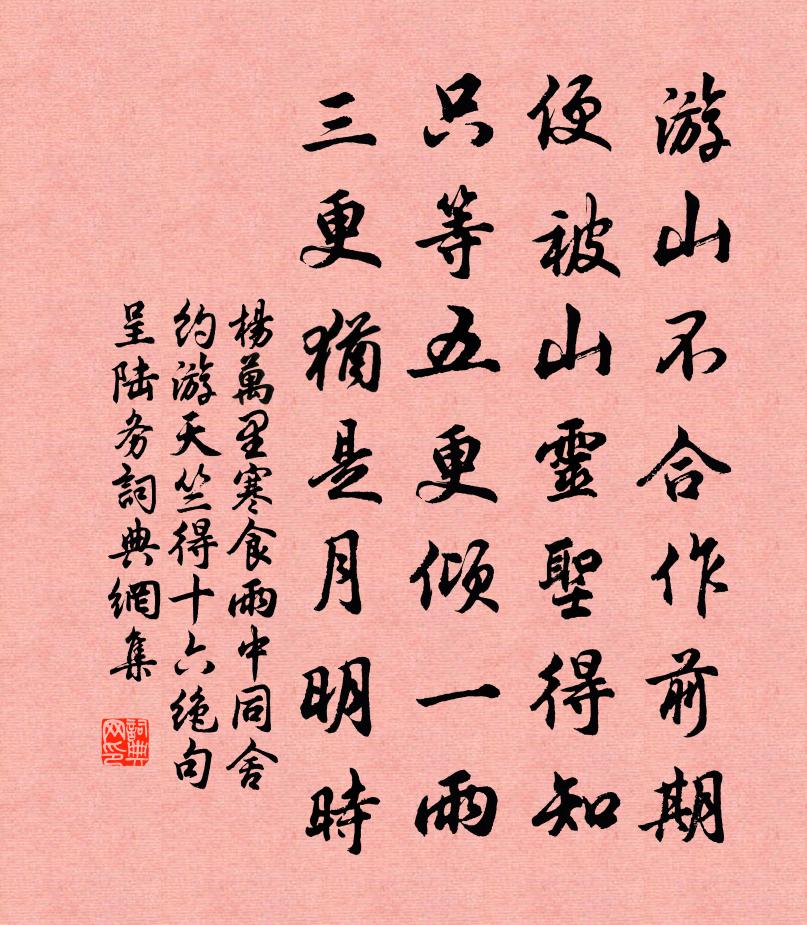 游山不合作前期
便被山靈聖得知
只等五更傾一雨
三更猶是月明時
楊萬里寒食雨中同舍
约游天竺得十六绝句
呈陆务詞典網集
詞典
网印